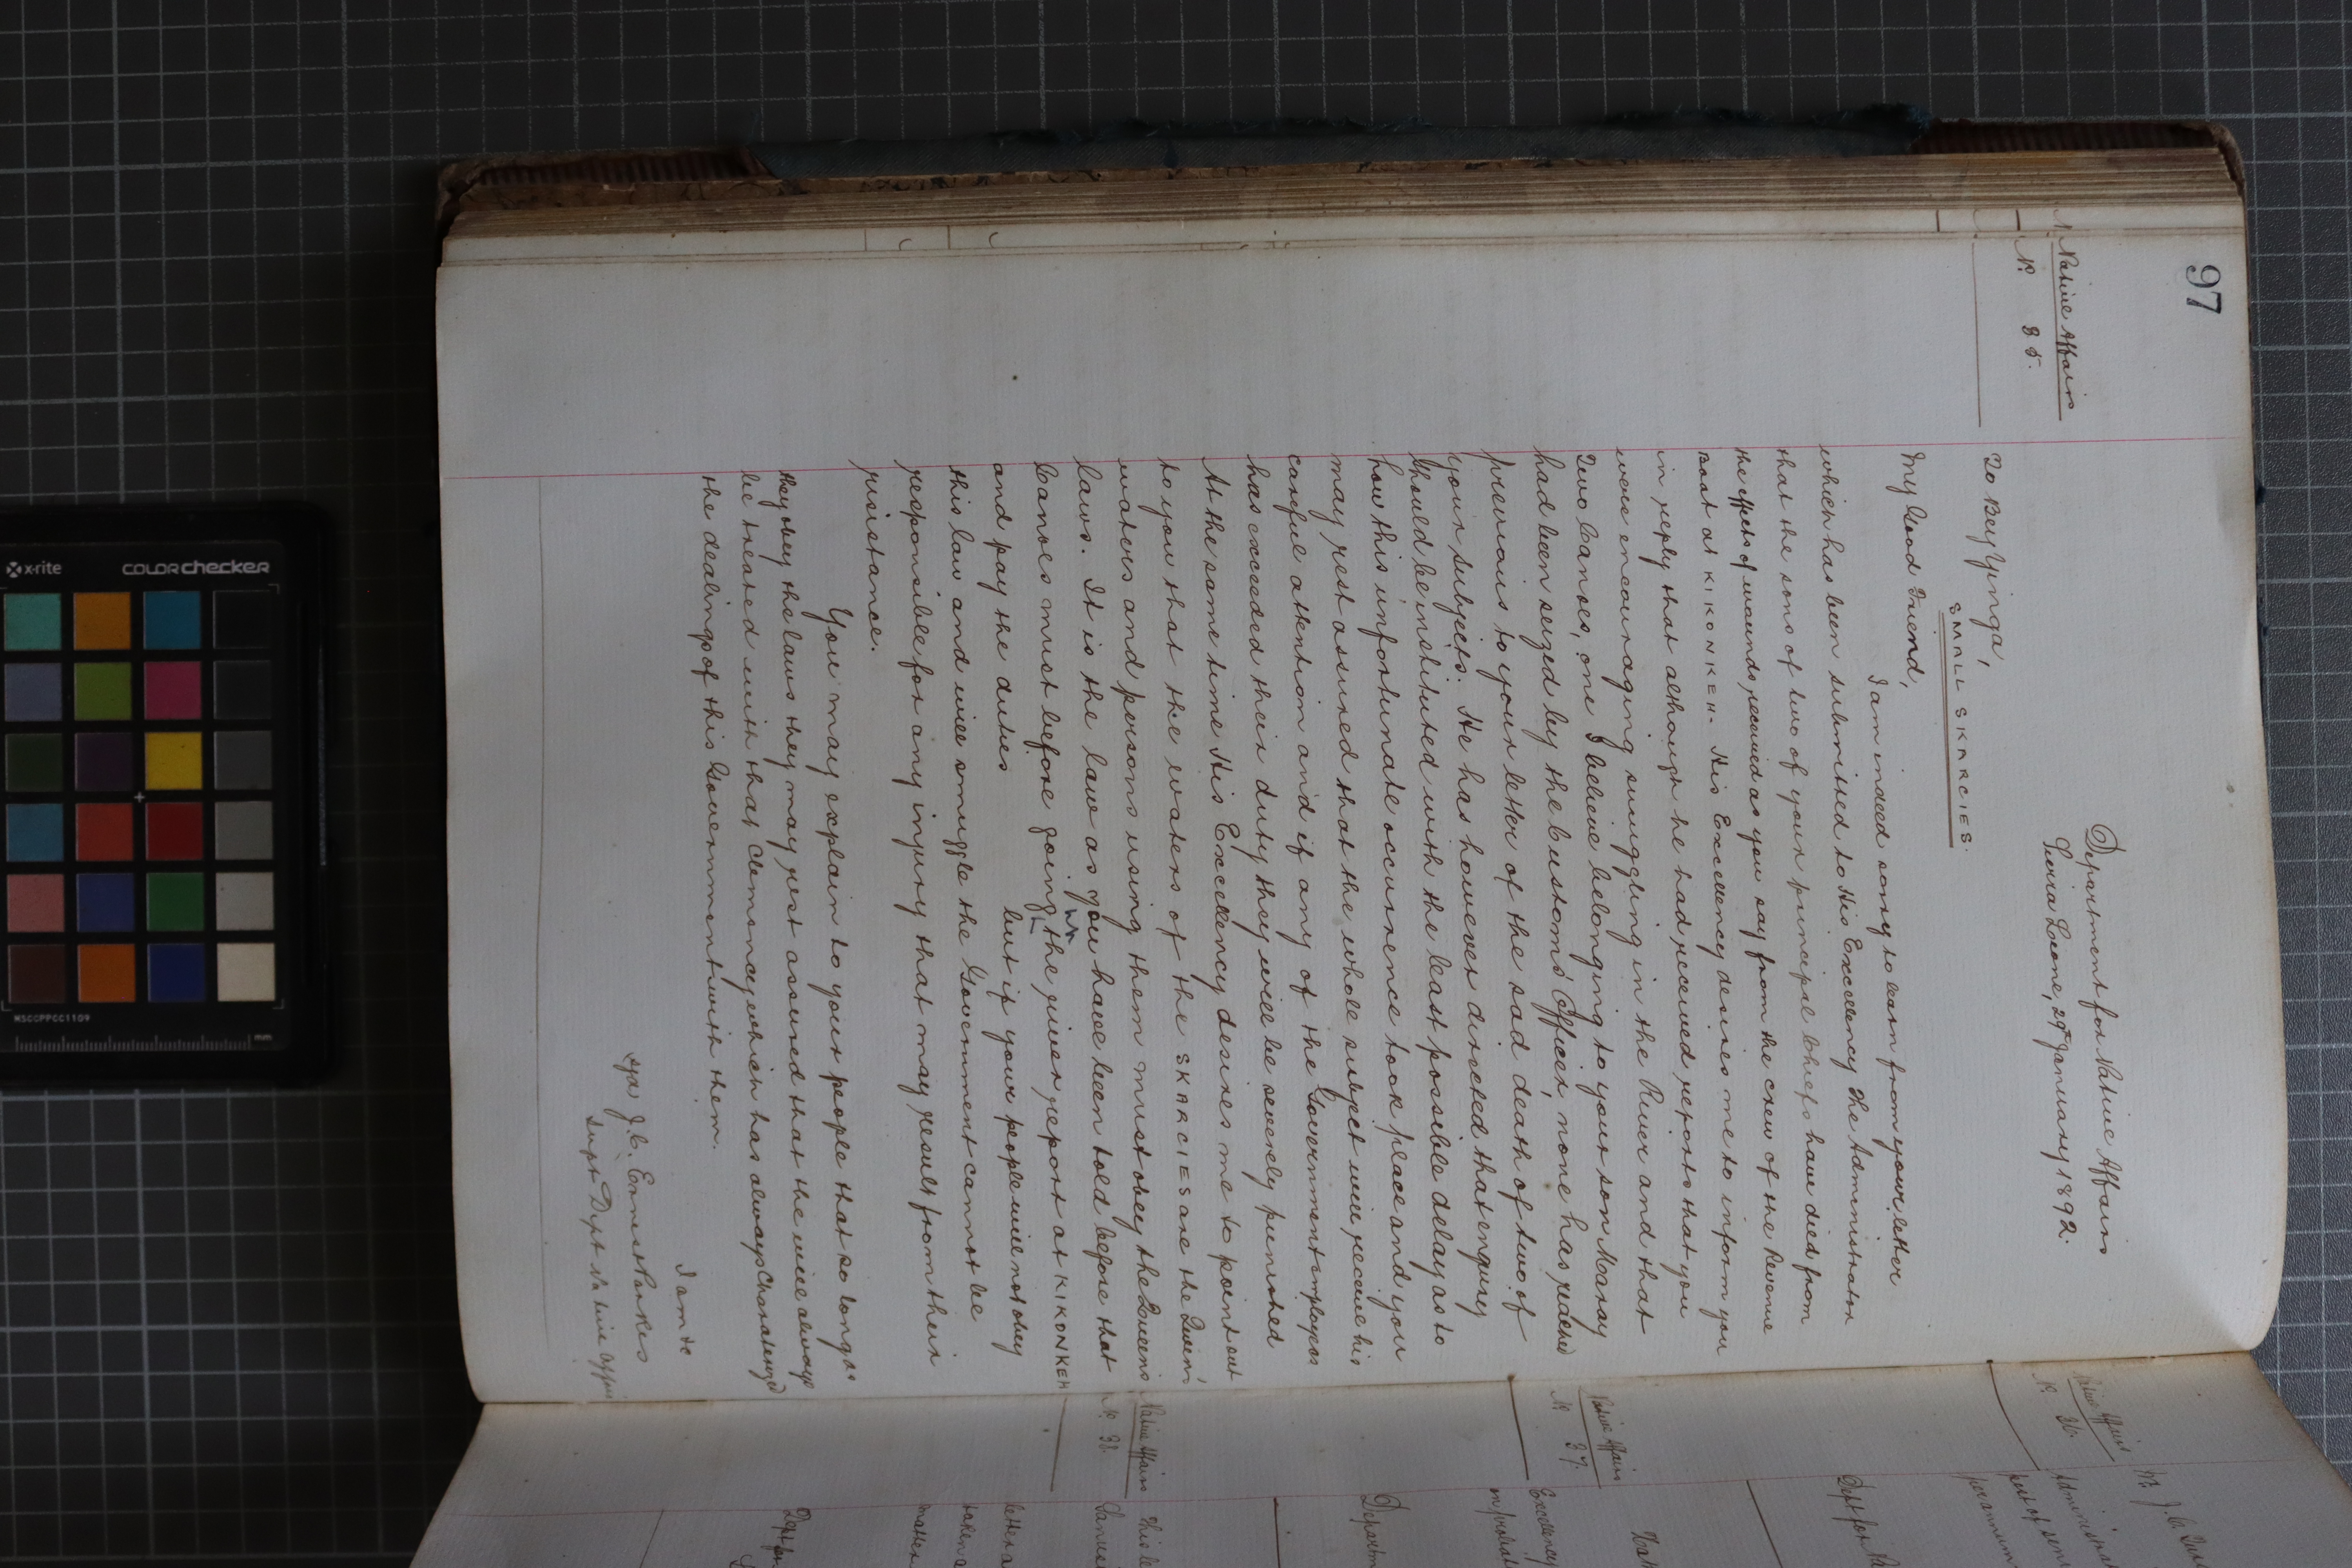 97
Native Affairs
No. 35.
Department for Native Affairs
Sierra Leone, 29th January 1892.
To Bey Yinga,
SMALL SKARCIES.
My Good Friend,
I am indeed sorry to learn from your letter
which has been submitted to His Excellency The Administrator
that the sons of two of your principal Chiefs have died from
the effects of wounds received as you say from the crew of the Revenue
Boat at KIKONKEH. His Excellency desires me to inform you
in reply that although he had received reports that you
were encouraging smuggling in the River and that
Two Canoes, one I believe belonging to your son Maray
had been seized by the Customs' Officer, none has reached
previous to your letter of the sad death of two of
your subjects. He has however directed that enquiry
should be instituted with the least possible delay as to
how this unfortunate occurrence took place and you
may rest assured that the whole subject will receive his
careful attention and if any of the Government employees
has exceeded their duty they will be severely punished
At the same time His Excellency desires me to point out
to you that the waters of the SKARCIES are the Queen's
waters and persons using them must obey the Queen's
laws. It is the law as you have been told before that
Canoes must before going up the river report at KIKONKEH
and pay the duties but if your people will not obey
this law and will smuggle the Government cannot be
responsible for any injury that may result from their
resistance.
You may explain to your people that so long as
they obey the laws they may rest assured that the will always
be treated with that clemency which has always charaterized
the dealings of this Government with them.
I am &c
(sgd) J. C. Ernest Parkes
Supt Dept Native Affairs
Native Affairs
No. 36.
Native Affairs
No. 37.
Native Affairs
No. 38.
Mr. J. C.
Administ
per annum
Dept for Na
Excellency
Departm
This le
letter
taken a
matter